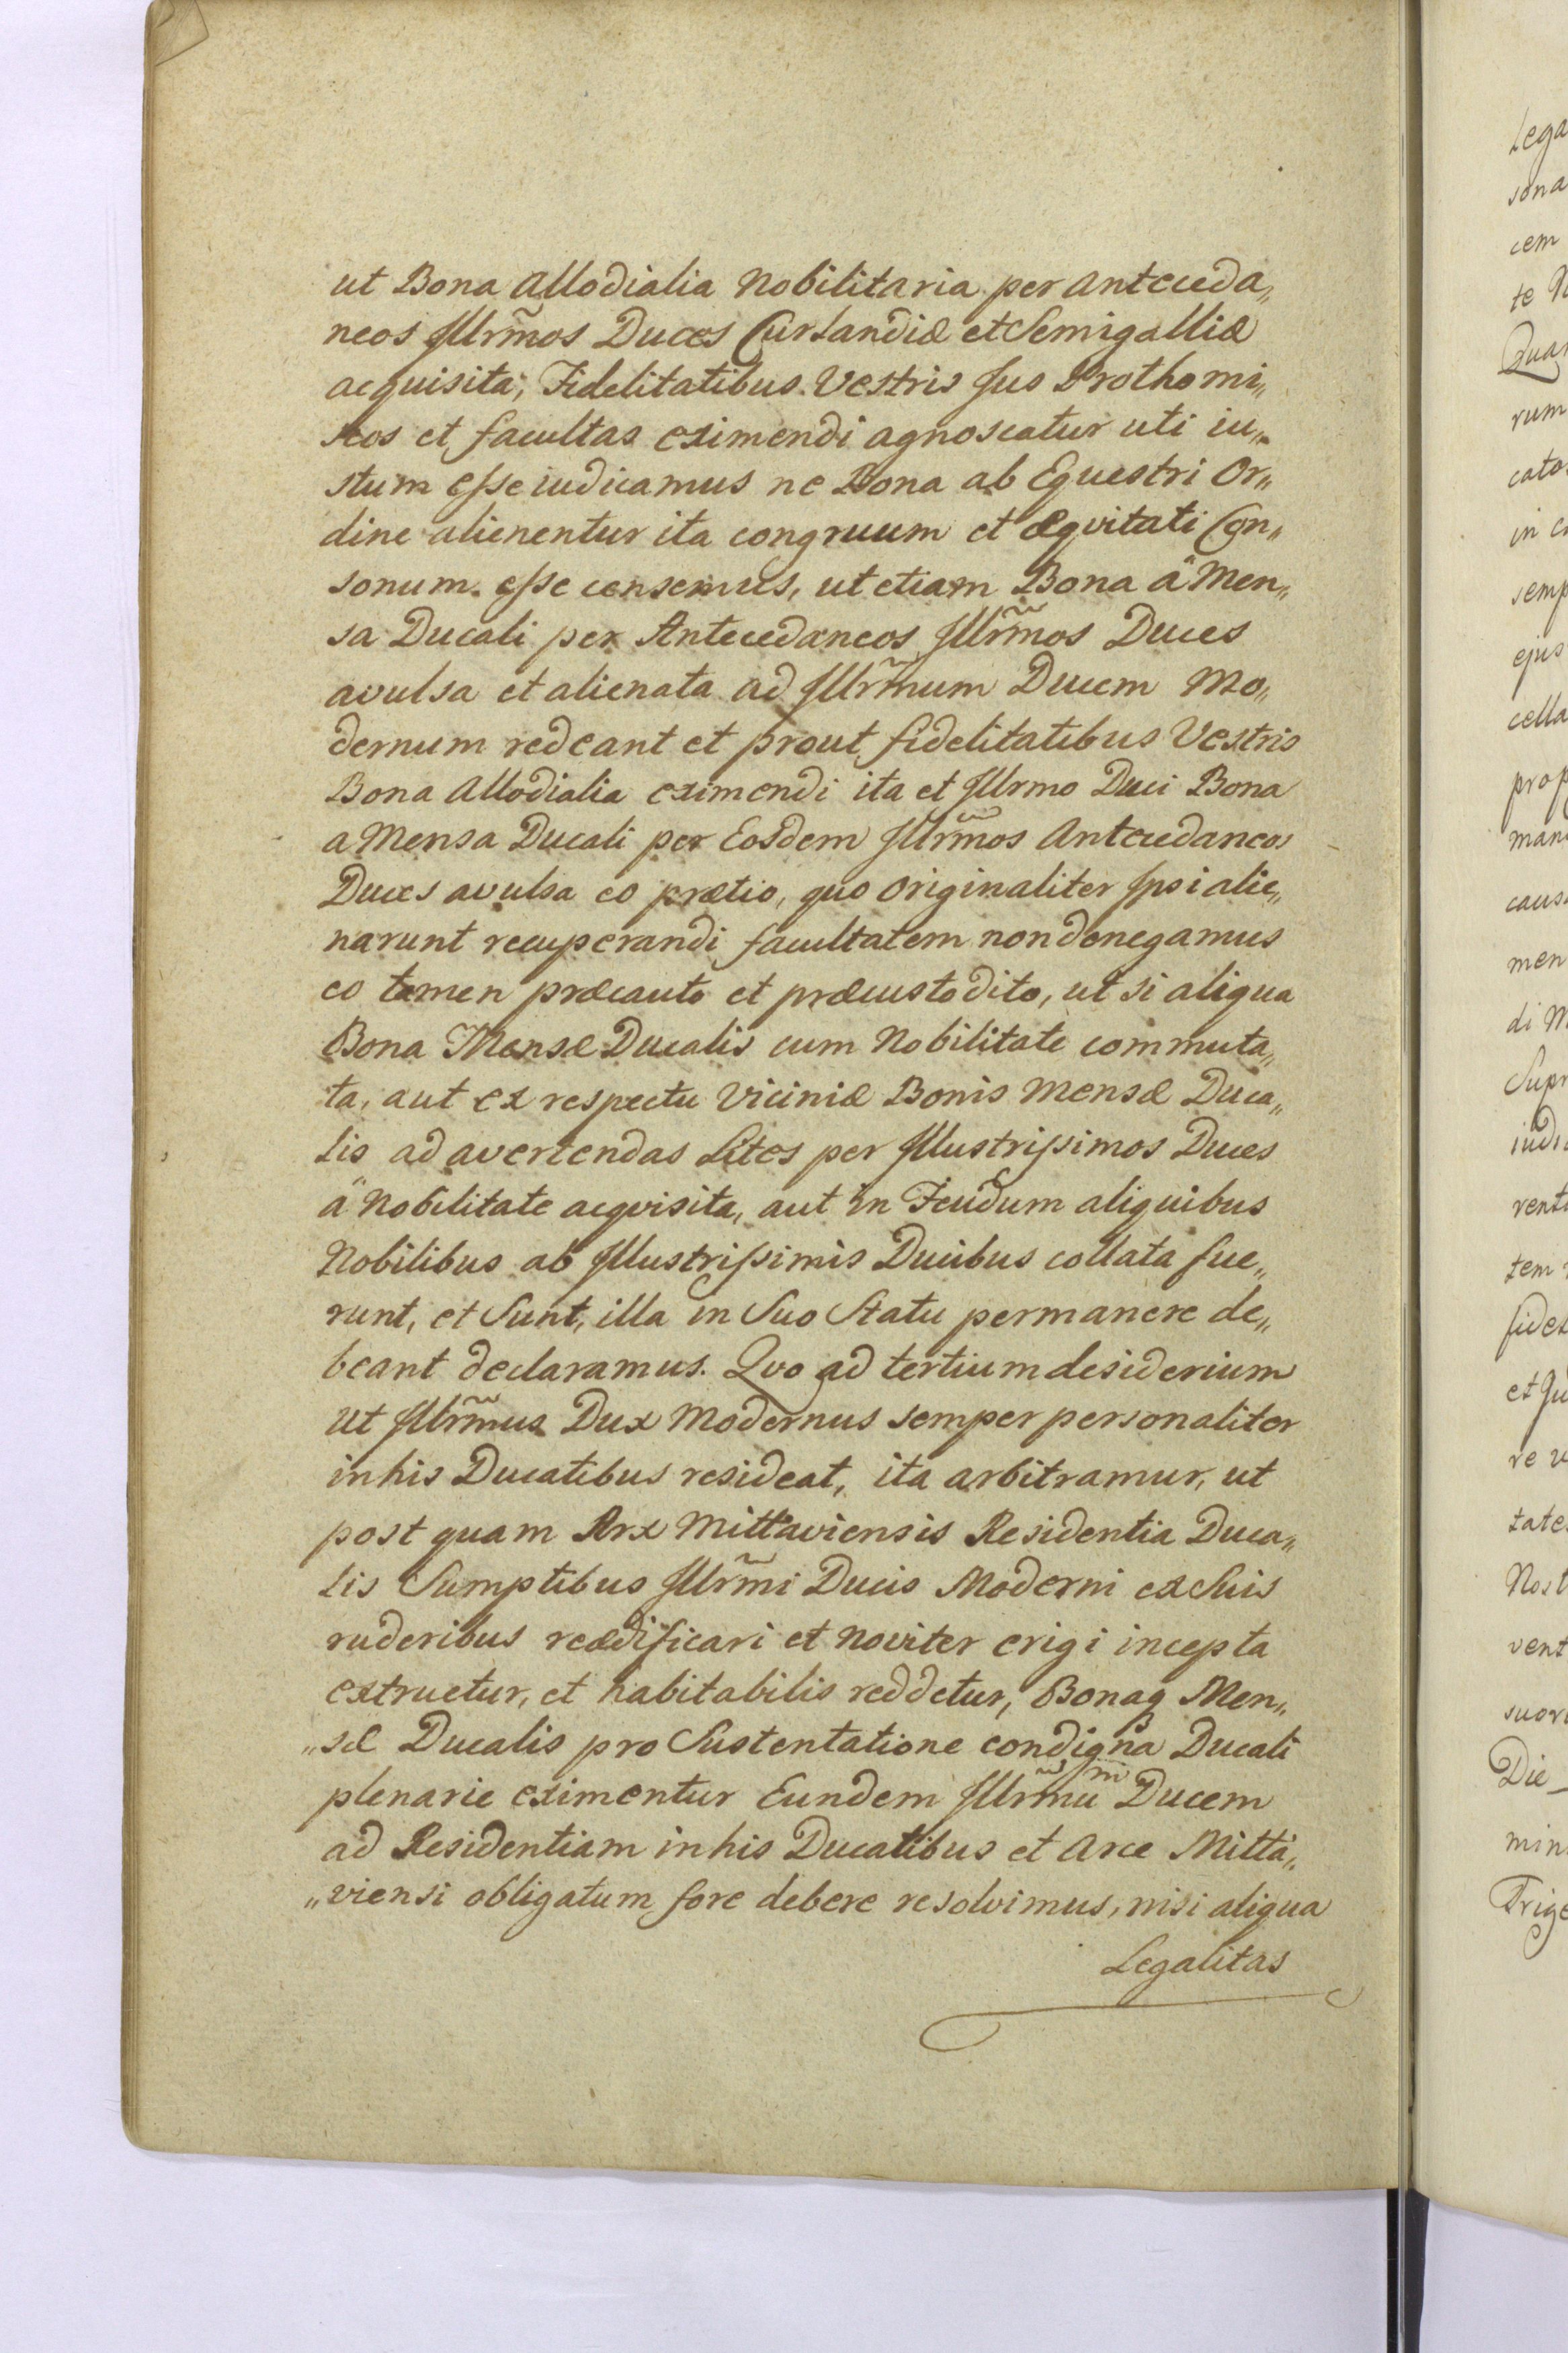 ut Bona Allodialia Nobilitaria per Anteceda„
neos Illrm̃os Duces Curlandiæ et Semigalliæ
acquisita, Fidelitatibus Vestris Jus Prothomi„
seos et facultas eximendi agnoscatur uti iu„
stum esse iudicamus ne Bona ab Equestri Or„
dine alienentur ita congruum et Æqvitati Con„
sonum esse censemus, ut etiam Bona a Men„
sa Ducali per Antecedaneos Illrm̃os Duces
avulsa et alienata ad Illrm̃um Ducem Mo„
dernum redeant et prout fidelitatibus Vestris
Bona Allodialia eximendi ita et Illrmo Duci Bona
a Mensa Ducali per Eosdem Illrm̃os Antecedaneos
Duces avulsa eo prætio, quo originaliter Ipsi alie„
narunt recuperandi facultatem non denegamus
eo tamen præcauto et præcustodito, ut si aliqua
Bona Mensæ Ducalis cum Nobilitate commuta„
ta, aut ex respectu Viciniæ Bonis Mensæ Duca„
lis ad avertendas Lites per Illustrissimos Duces
a Nobilitate acqvisita, aut in Feudum aliquibus
Nobilibus ab Illustrissimis Ducibus collata fue„
runt, et Sunt, illa in Suo Statu permanere de„
beant declaramus. Qvo ad tertium desiderium
ut Illrm̃us Dux Modernus semper personaliter
in his Ducatibus resideat, ita arbitramur, ut
post quam Arx Mittaviensis Residentia Duca„
lis Sumptibus Illrm̃i Ducis Moderni ex Suis
ruderibus reædificari et noviter erigi incepta
extruetur, et habitabilis reddetur, Bonaq Men„
„sæ Ducalis pro Sustentatione condigna Ducali
plenarie eximentur Eundem Illrm̃um Ducem
ad Residentiam in his Ducatibus et Arce Mitta„
„viensi obligatum fore debere resolvimus, nisi aliqua
Legalitas